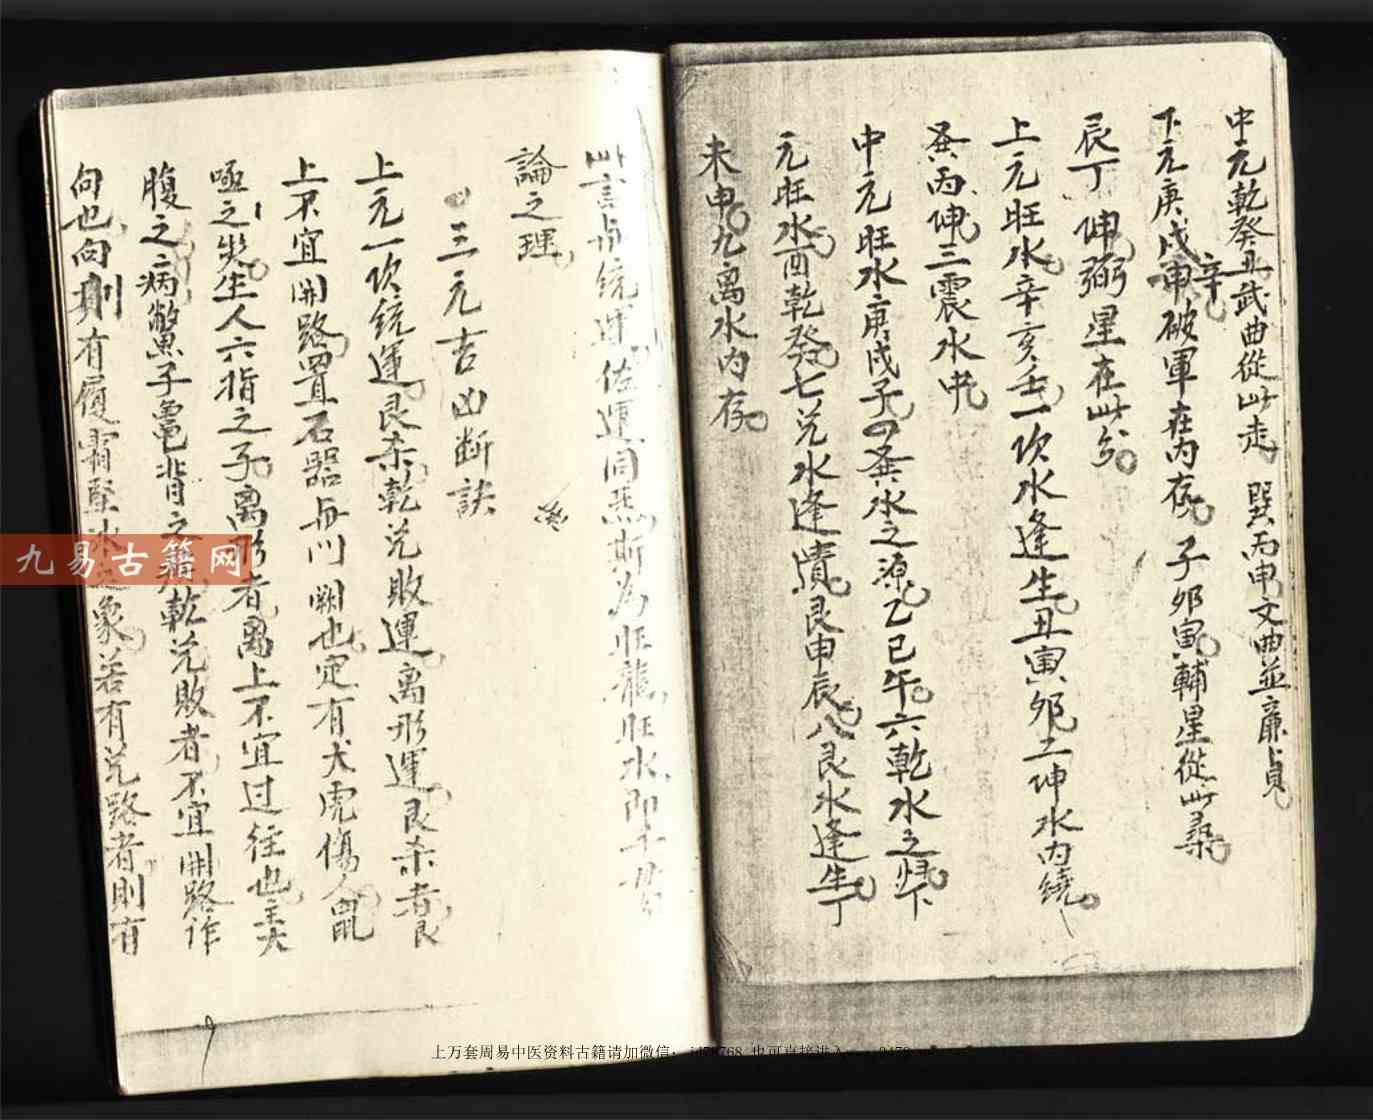 中元乾癸丑武曲從此走 巽丙申文曲並廉貞
下元庚戌辛破軍在內存 子卯寅輔星從此尋
辰丁坤弼星在此分
上元旺水辛亥壬一坎水逢生丑寅卯二坤水內繞
巽丙坤三震水
中元旺水庚戌子四巽水之源乙巳午六乾水之歸下
元旺水酉乾癸七兌水逢隤艮申辰八艮水逢生丁
未申九離水內存
統運佐運同 斯為旺龍旺水即
論之理
三元吉凶斷訣
上元一坎統運艮杀乾兌敗運离形運艮杀者艮
上不宜開路置石器 门闕也定有犬虎傷人
啞之 生人六指之子离形者离上不宜过往也主大
腹之病 子龜背之 乾兌敗者不宜開路作
向也向則有履霜堅冰之象若有兌路者則有
九易古籍网
上万套周易中医资料古籍请加微信